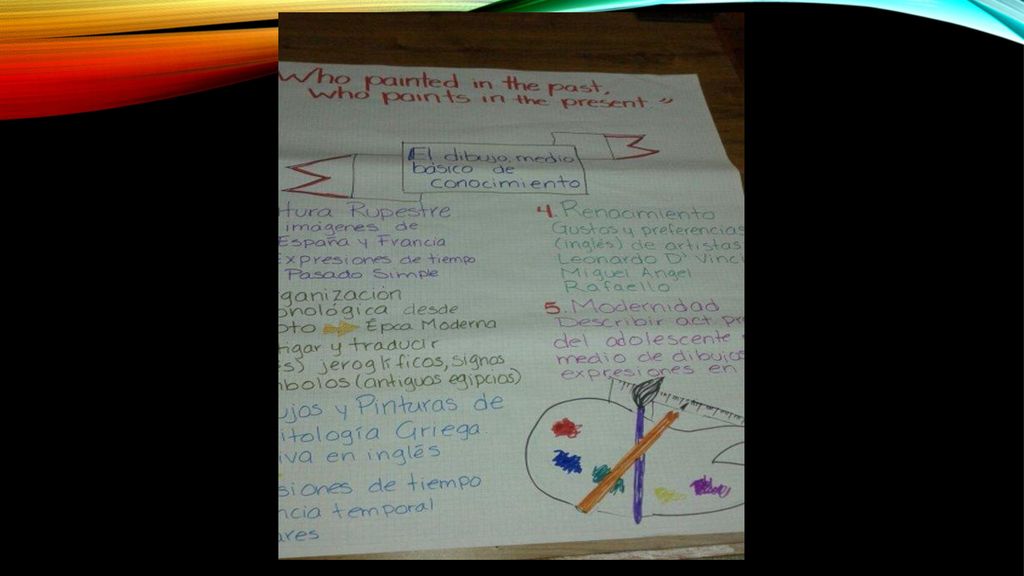 Who painted in the past,
who paints in the present."
El dibujo, medio
básico de
conocimiento
tura Rupestre
imágenes de
España y Francia
Expresiones de tiempo
Pasado Simple
ganización
onológica desde
pto Épca Moderna
igar y traducir
és) jeroglíficos, signos
mbolos (antiguos egipcios)
ujos y Pinturas de
itología Griega
iva en inglés
siones de tiempo
ncia temporal
ares
4. Renacimiento
Gustos y preferencias
(inglés) de artistas
Leonardo D' Vinci
Miguel Angel
Rafaello
5. Modernidad
Describir act. pr
del adolescente
medio de dibujos
expresiones en